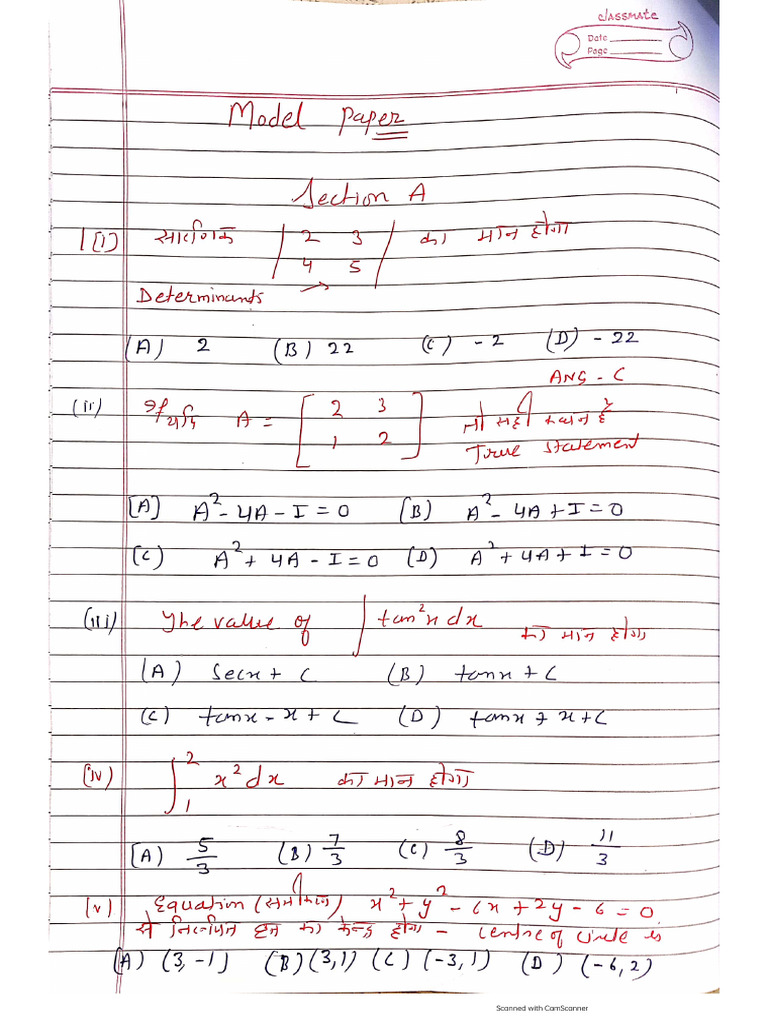 classmate
Date
Page
Model paper
Section A
1(i) सारणिक | 2 3 | का मान होगा
| 4 5 |
Determinants →
(A) 2 (B) 22 (C) -2 (D) -22
ANS - C
(ii) If यदि A = [ 2 3 ] तो सही कथन है
[ 1 2 ] True statement
[A] A² - 4A - I = 0 (B) A² - 4A + I = 0
(C) A² + 4A - I = 0 (D) A² + 4A + I = 0
(iii) The value of ∫ tan²x dx का मान होगा
(A) Secx + C (B) tanx + C
(C) tanx - x + C (D) tanx + x + C
(iv) ∫₁² x² dx का मान होगा
(A) 5/3 (B) 7/3 (C) 8/3 (D) 11/3
(v) Equation (समीकरण) x² + y² - 6x + 2y - 6 = 0
से निरूपित वृत्त का केन्द्र होगा - Centre of Circle is
(A) (3, -1) (B) (3, 1) (C) (-3, 1) (D) (-6, 2)
Scanned with CamScanner